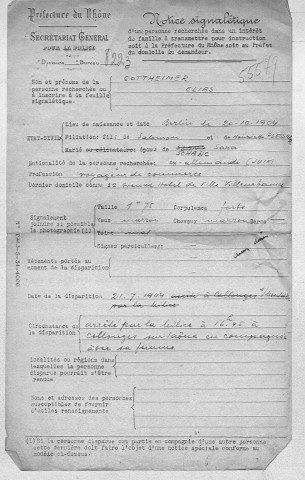 Préfecture du Rhône
SECRÉTARIAT GÉNÉRAL
POUR LA POLICE
Division Bureau
8223
Notice signalétique
d'une personne recherchée dans un intérêt
de famille à transmettre pour instruction
soit à la Préfecture du Rhône soit au Préfet
du domicile du demandeur.
Nom et prénoms de la
personne recherchée ou
à inscrire à la feuille
signalétique.
GOTTHEIMER
ELIAS
ETAT-CIVIL
Lieu de naissance et date Berlin le 20.10.1904
Filiation: fils de Salomon et de
Marié ou célibataire: époux de Sara
Nationalité de la personne recherchée: ex-allemande
Profession voyageur de commerce
Dernier domicile connu: 25 avenue Hotel de Ville Villeurbanne
Signalement
joindre si possible
la photographie (1)
Taille 1m 75 Corpulence forte
Yeux marron Cheveux marron Barbe
Teint mat
Signes particuliers:
Vêtements portés au
moment de la disparition
Date de la disparition 21.7.1944 à Collonges
par la milice
Circonstances de
la disparition
arrêté par la milice à 16h45 à
Collonges sur Saône en compagnie
de sa femme
Localités ou régions dans
lesquelles la personne
disparue pourrait s'être
rendue
Noms et adresses des personnes
susceptibles de fournir
d'utiles renseignements
(1) Si la personne disparue est partie en compagnie d'une autre personne
cette dernière doit faire l'objet d'une notice spéciale conforme au
modèle ci-dessus.